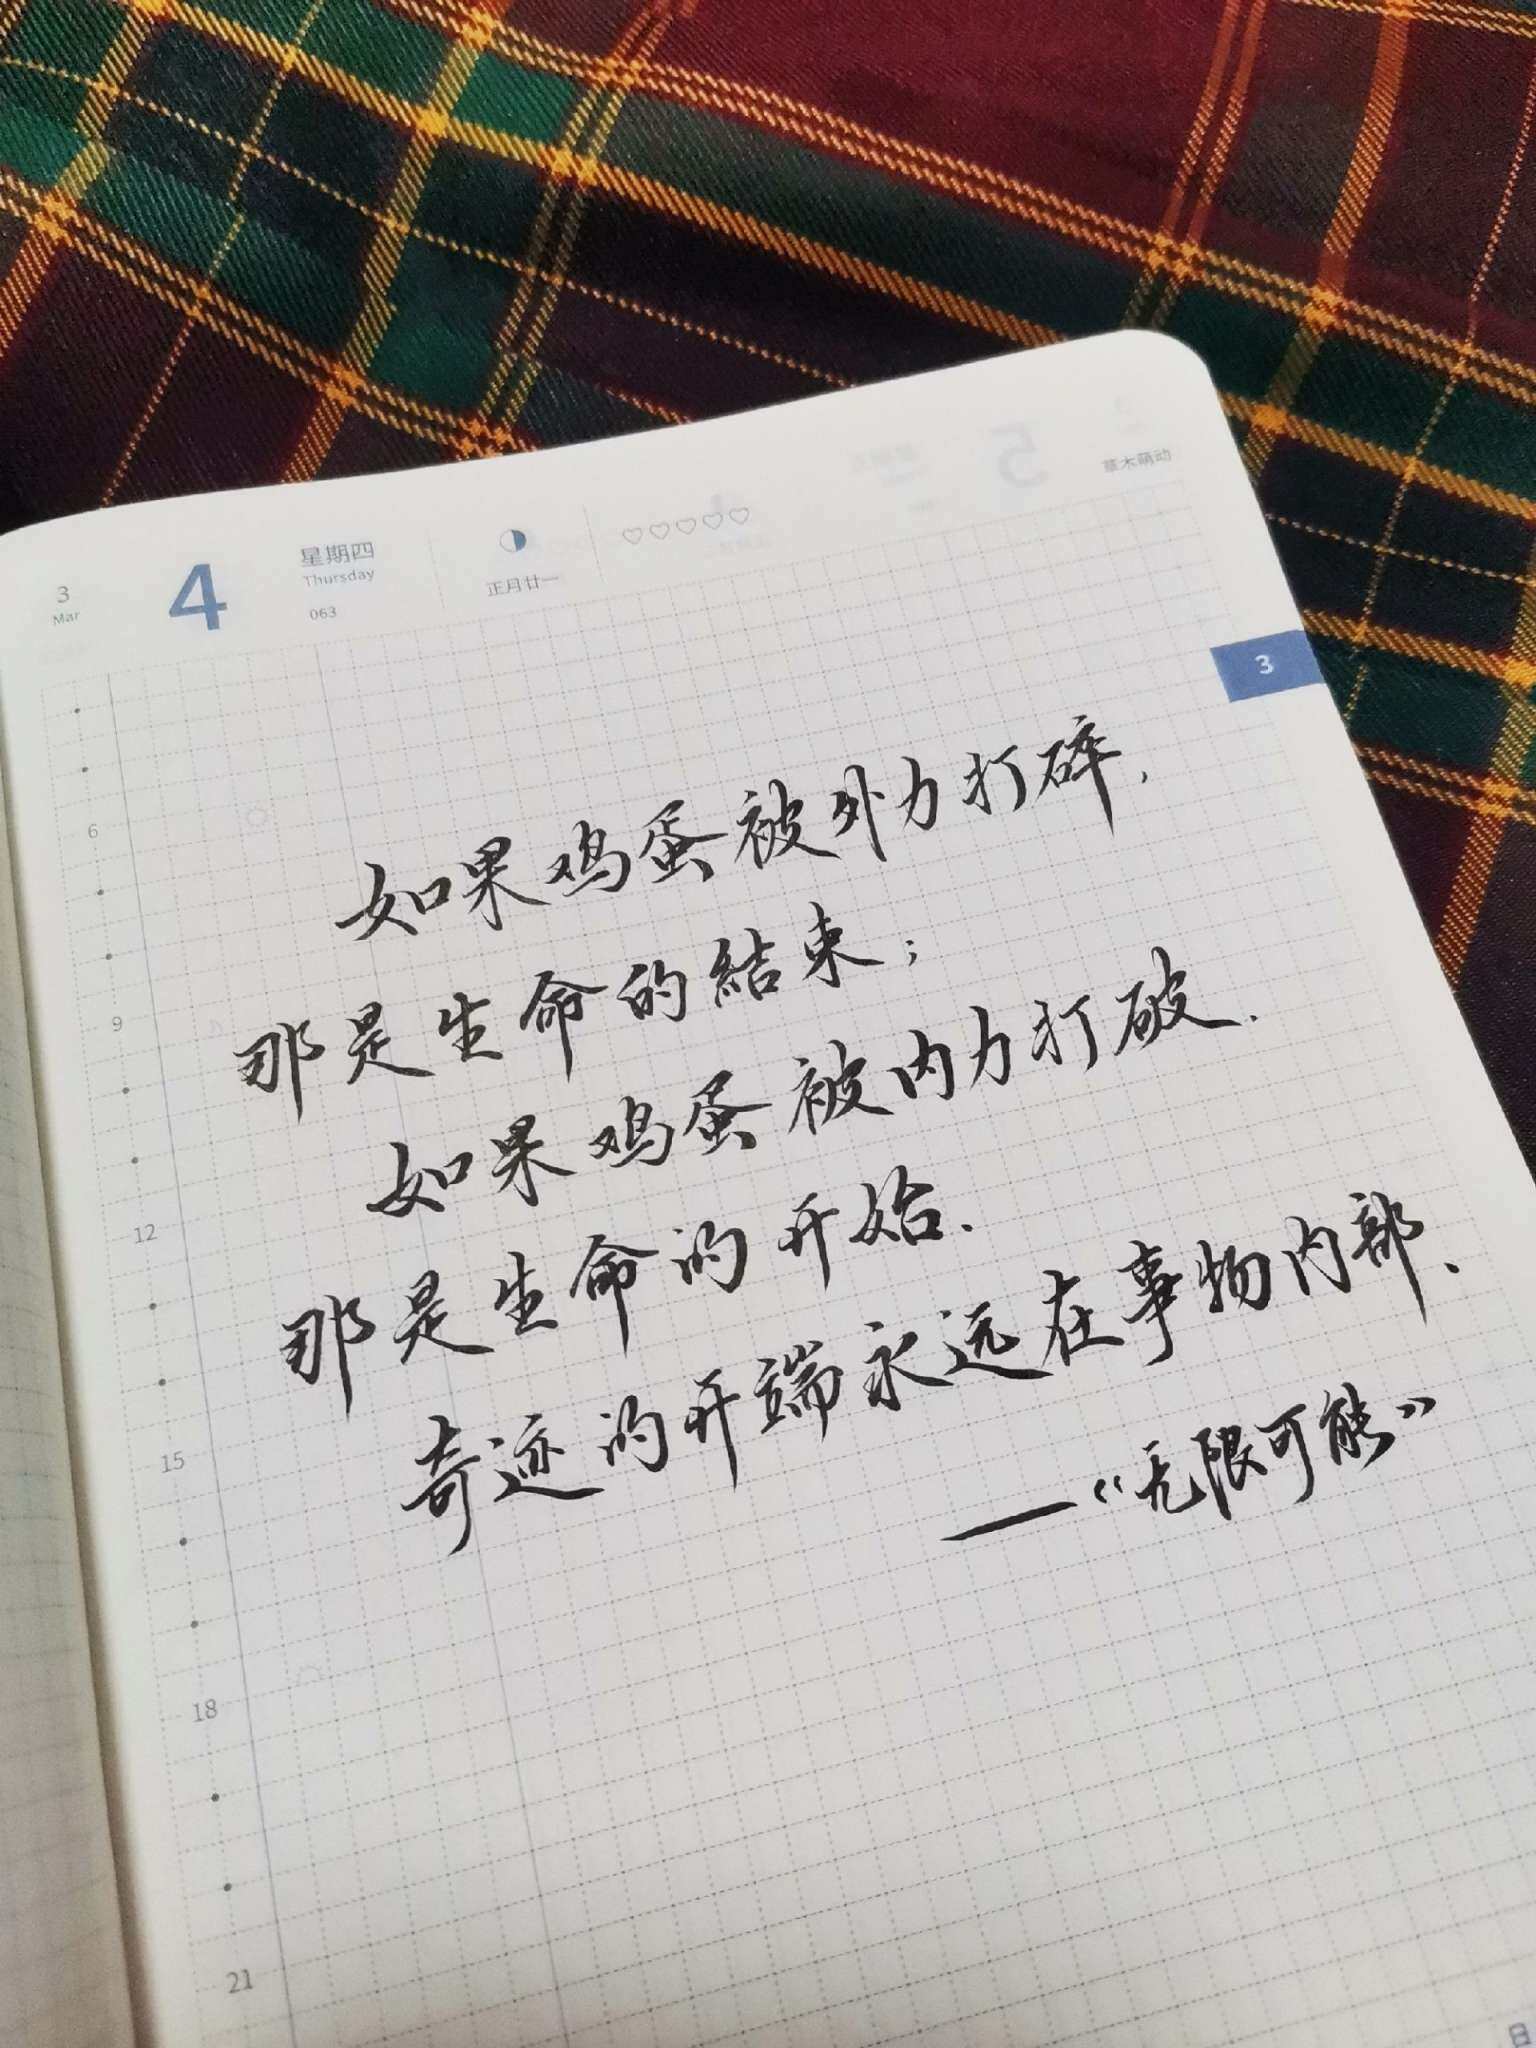 3
Mar
4
星期四
Thursday
063
正月廿一
草木萌动
5
3
如果鸡蛋被外力打碎,
那是生命的結束;
如果鸡蛋被内力打破.
那是生命的开始.
奇迹的开端永远在事物内部、
—《无限可能》
6
9
12
15
18
21
日